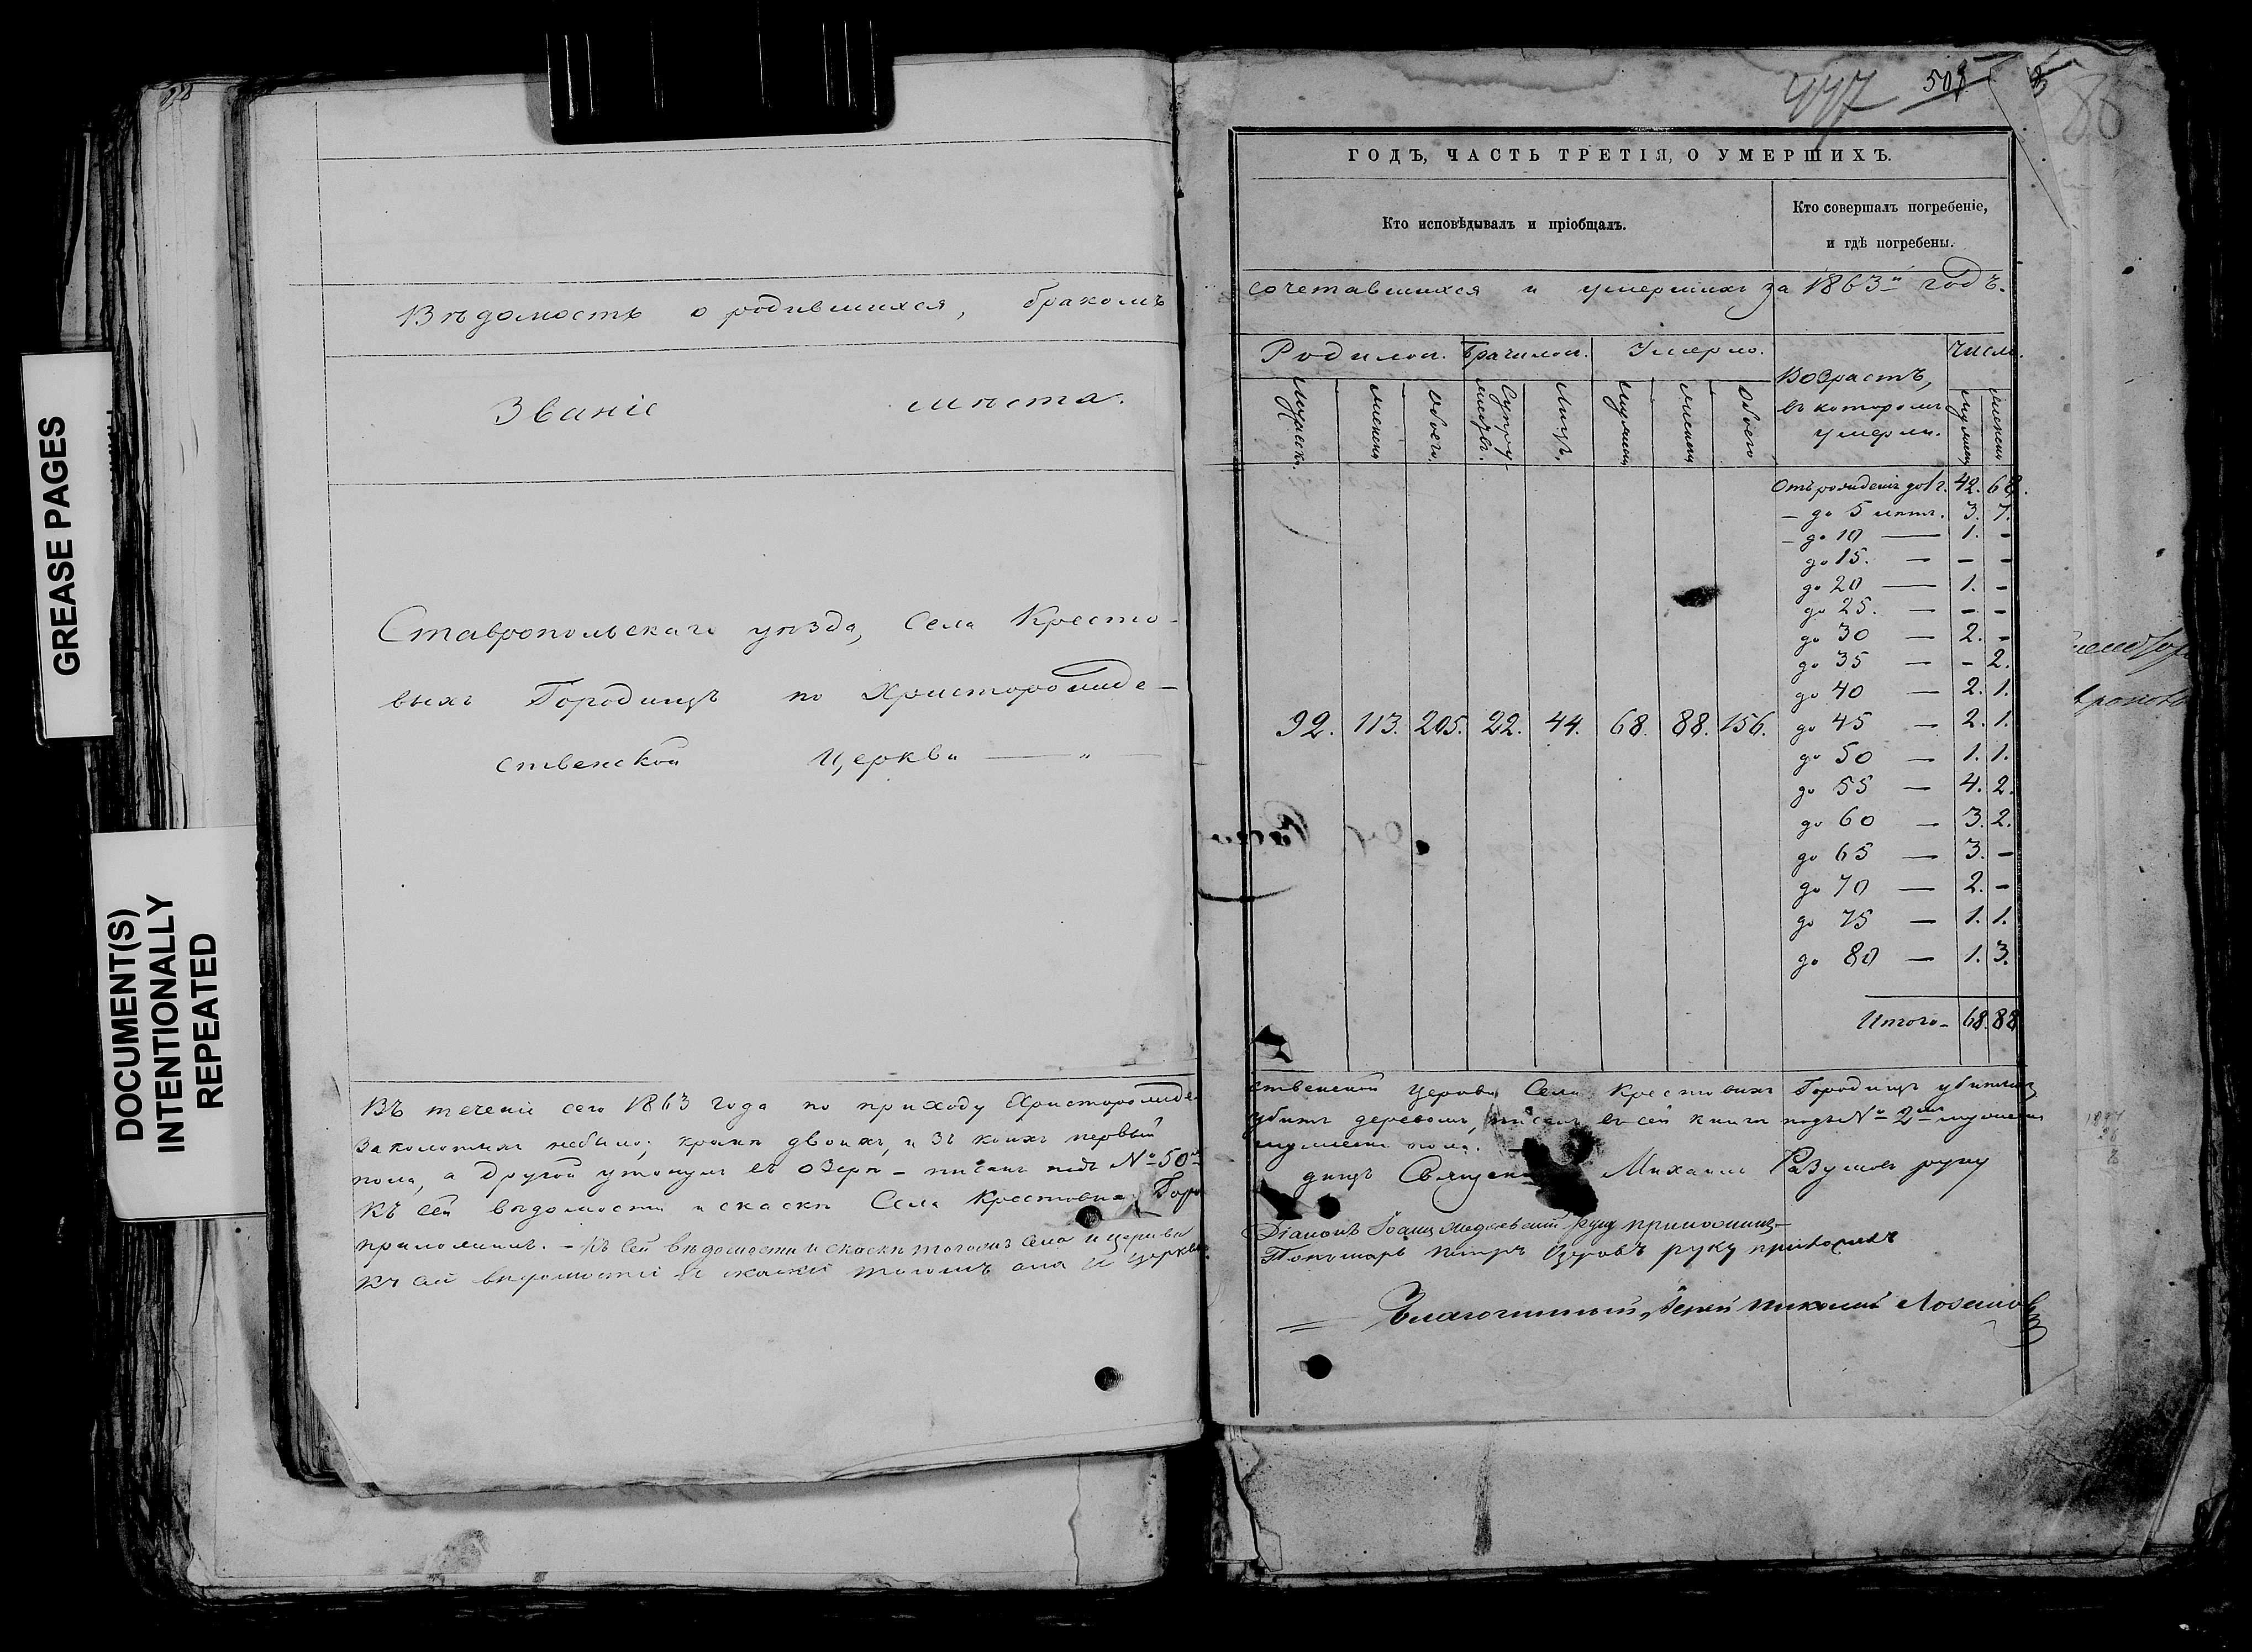 GREASE PAGES
DOCUMENT(S)
INTENTIONALLY
REPEATED
Вѣдомость о родившихся, бракомъ
Званіе мѣста.
Ставропольскаго уѣзда, Села Кресто-
выхъ Городищъ по Христорожде-
ственской Церкви — „ —
Въ теченіе сего 1863 года по приходу Христорожде-
Заколотыхъ небыло; кромѣ двоихъ, изъ коихъ первый
пола, а другой утонулъ въ озерѣ - писанъ подъ № 50м
Къ сей вѣдомости и скаскѣ Села Крестовыхъ Горо
приложилъ. - Къ сей вѣдомости и скаскѣ тогожъ Села и церкви
Къ сей вѣдомости и скаски тогожъ села и церкви
447 507
86
ГОДЪ, ЧАСТЬ ТРЕТІЯ, О УМЕРШИХЪ.
Кто исповѣдывалъ и пріобщалъ.
Кто совершалъ погребеніе,
и гдѣ погребены.
сочетавшихся и умершихъ за 1863й годъ.
Родилось. Брачилось. Умерло.
Возрастъ,
въ которомъ
умерли.
Число.
Мужеска.
Женска
Обоего.
Супру-
жествъ.
Лицъ.
Мужеска
Женска
Обоего
Мужеска
Женска
92. 113. 205. 22. 44. 68. 88. 156.
Отъ рожденія до 1 г. 42. 68.
— до 5 лѣтъ. 3. 7.
— до 10 — 1. -
до 15. — - -
до 20 — 1. -
до 25. — - -
до 30 — 2. -
до 35 — - 2.
до 40 — 2. 1.
до 45 — 2. 1.
до 50 — 1. 1.
до 55 — 4. 2.
до 60 — 3. 2.
до 65 — 3. -
до 70 — 2. -
до 75 — 1. 1.
до 80 — 1. 3.
Итого - 68. 88
ственской Церкви Села Крестовыхъ Городищъ убитыхъ,
убитъ деревомъ, писанъ въ сей книгѣ подъ № 2мъ
пола.
дищъ Священ Михаилъ Разумовъ руку
Діаконъ Іоаннъ руку приложилъ
Пономарь Петръ руку приложилъ
Благочинный, Іерей Николай